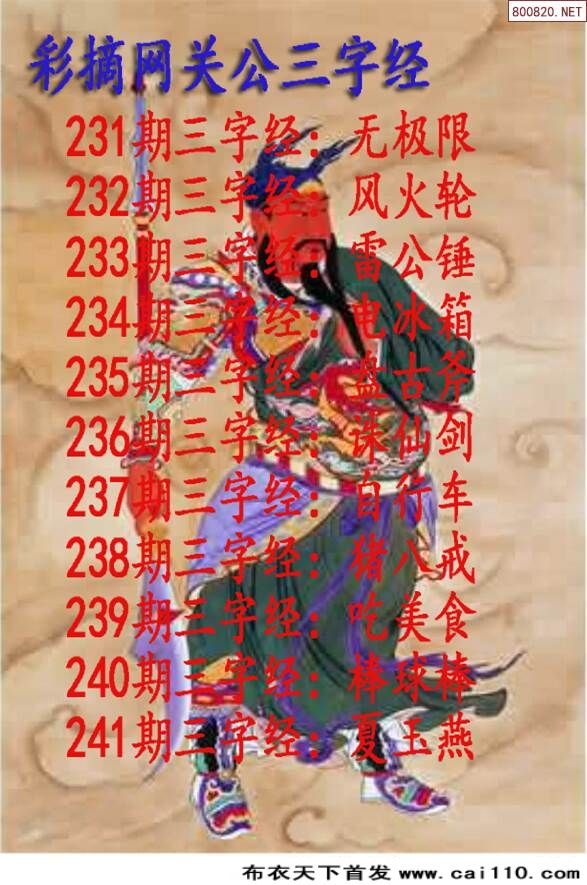 800820.NET
彩摘网关公三字经
231期三字经：无极限
232期三字经：风火轮
233期三字经：雷公锤
234期三字经：电冰箱
235期三字经：盘古斧
236期三字经：诛仙剑
237期三字经：自行车
238期三字经：猪八戒
239期三字经：吃美食
240期三字经：棒球棒
241期三字经：夏玉燕
布衣天下首发 www.cai110.com